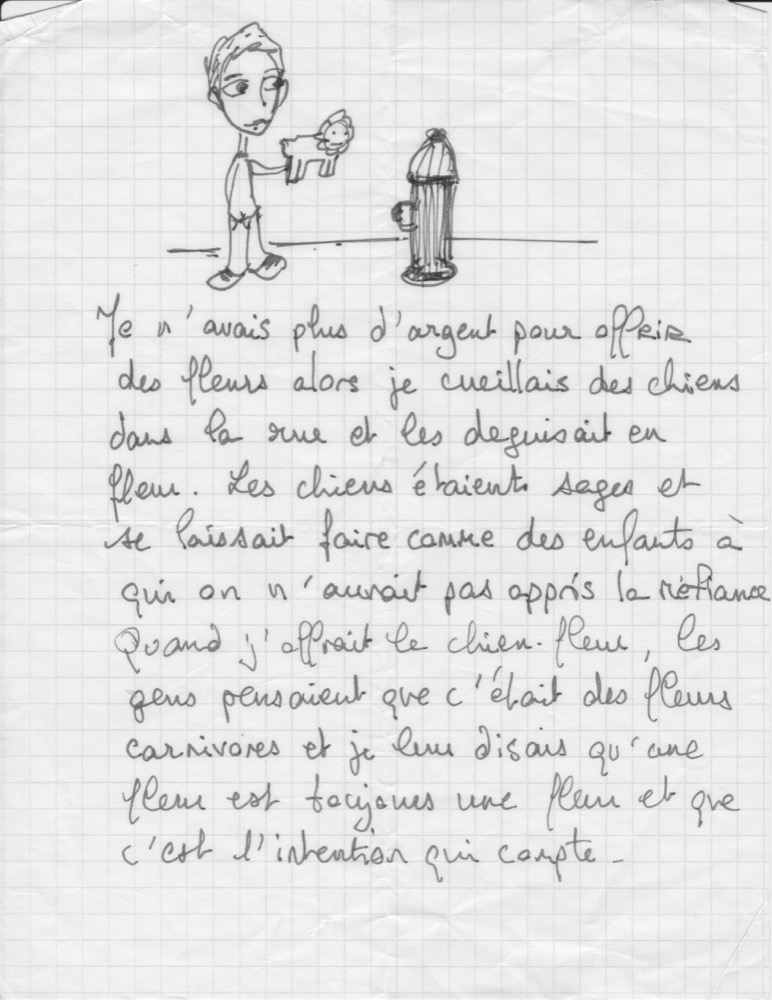 Je n'avais plus d'argent pour offrir
des fleurs alors je cueillais des chiens
dans la rue et les deguisait en
fleur. Les chiens étaients sages et
se laissait faire comme des enfants à
qui on n'aurait pas appris la méfiance
Quand j'offrait le chien-fleur, les
gens pensaient que c'était des fleurs
carnivores et je leur disais qu'une
fleur est toujours une fleur et que
c'est l'intention qui compte -